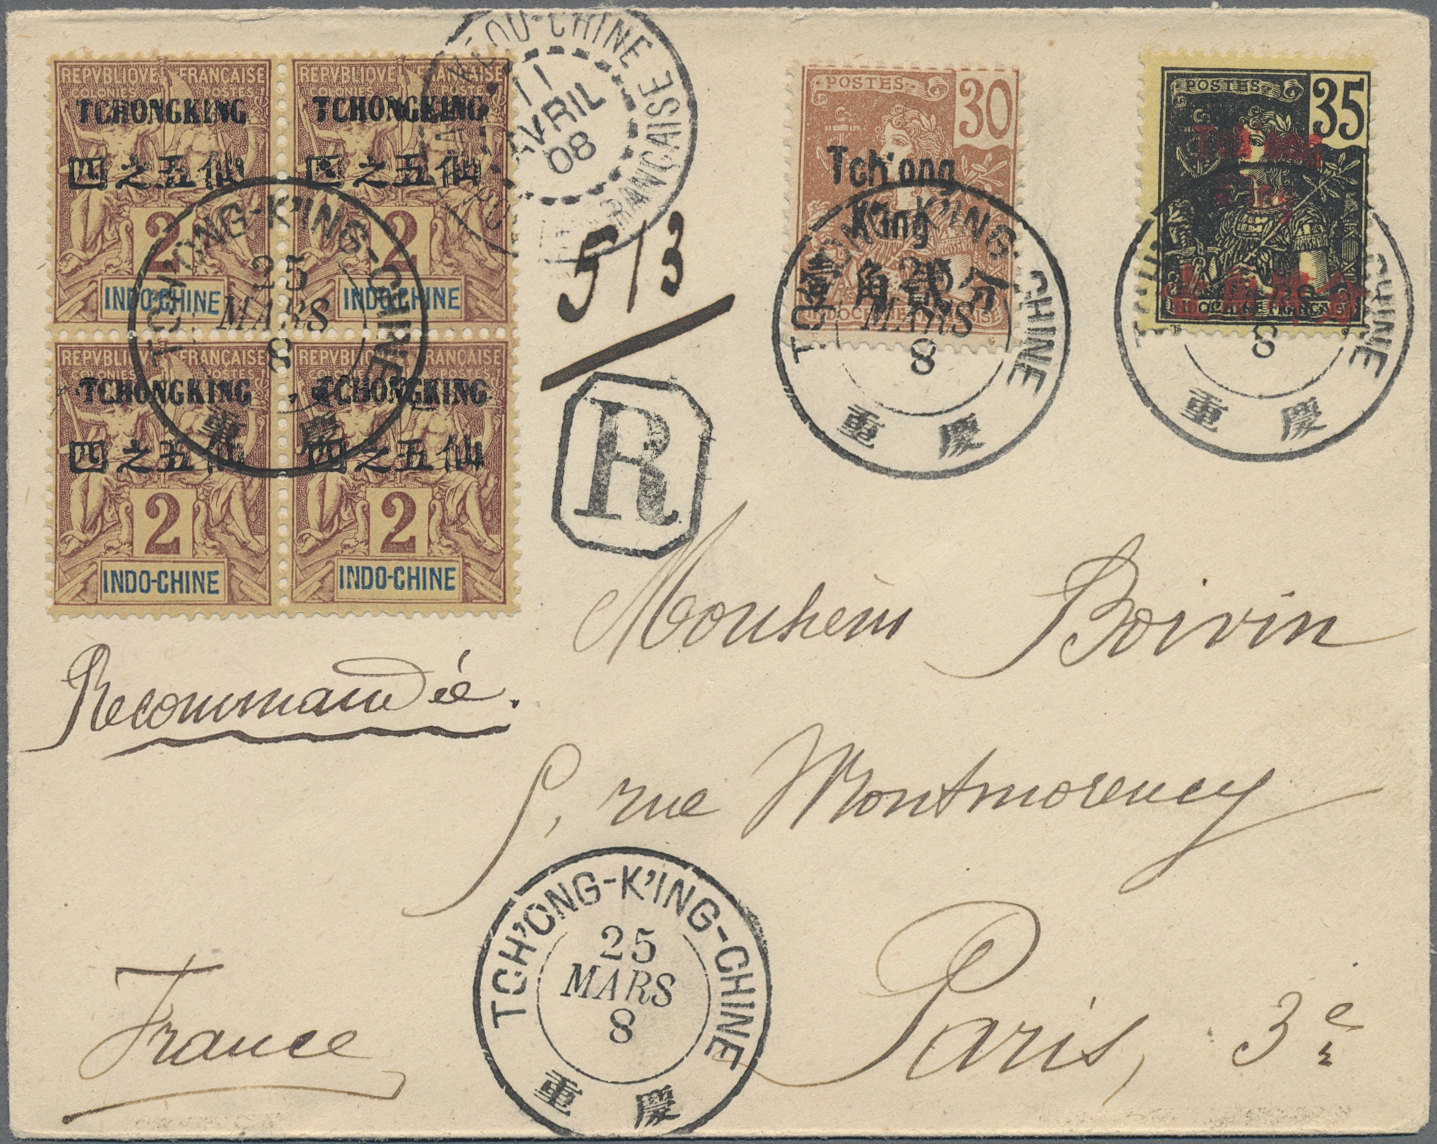 REPVBLIQVE FRANÇAISE
COLONIES POSTES
TCHONGKING
四之五仙
2
INDO-CHINE
REPVBLIQVE FRANÇAISE
COLONIES POSTES
TCHONGKING
四之五仙
2
INDO-CHINE
REPVBLIQVE FRANÇAISE
COLONIES POSTES
TCHONGKING
四之五仙
2
INDO-CHINE
REPVBLIQVE FRANÇAISE
COLONIES POSTES
TCHONGKING
四之五仙
2
INDO-CHINE
TCH'ONG-K'ING-CHINE
25
MARS
8
重慶
OU-CHINE
11
AVRIL
08
FRANCAISE
513
R
POSTES
30
Tch'ong
King
角貳分
TCH'ONG-K'ING-CHINE
25
MARS
8
重慶
POSTES
35
CHINE
8
重慶
Monsieur Boivin
Recommandée.
5, rue Montmorency
Paris, 3e
France
TCH'ONG-K'ING-CHINE
25
MARS
8
重慶